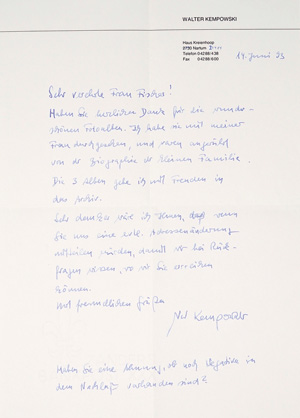 WALTER KEMPOWSKI
Haus Kreienhoop
2730 Nartum
Telefon
Fax
14. Juni 93
Sehr verehrte Frau Fischer!
Haben Sie herzlichen Dank für die wunder-
schönen Fotoalben. Ich habe sie mit meiner
Frau durchgesehen, und waren angerührt
von der Biographie der kleinen Familie.
Die 3 Alben gebe ich mit Freuden in
das Archiv.
Sehr dankbar wäre ich Ihnen, daß wenn
Sie uns eine evtl. Adressenänderung
mitteilen würden, damit wir bei Rück-
fragen wissen, wo wir Sie erreichen
können.
Mit freundlichen Grüßen
Kempowski
Haben Sie eine Ahnung, ob noch Negative in
dem Nachlaß vorhanden sind?